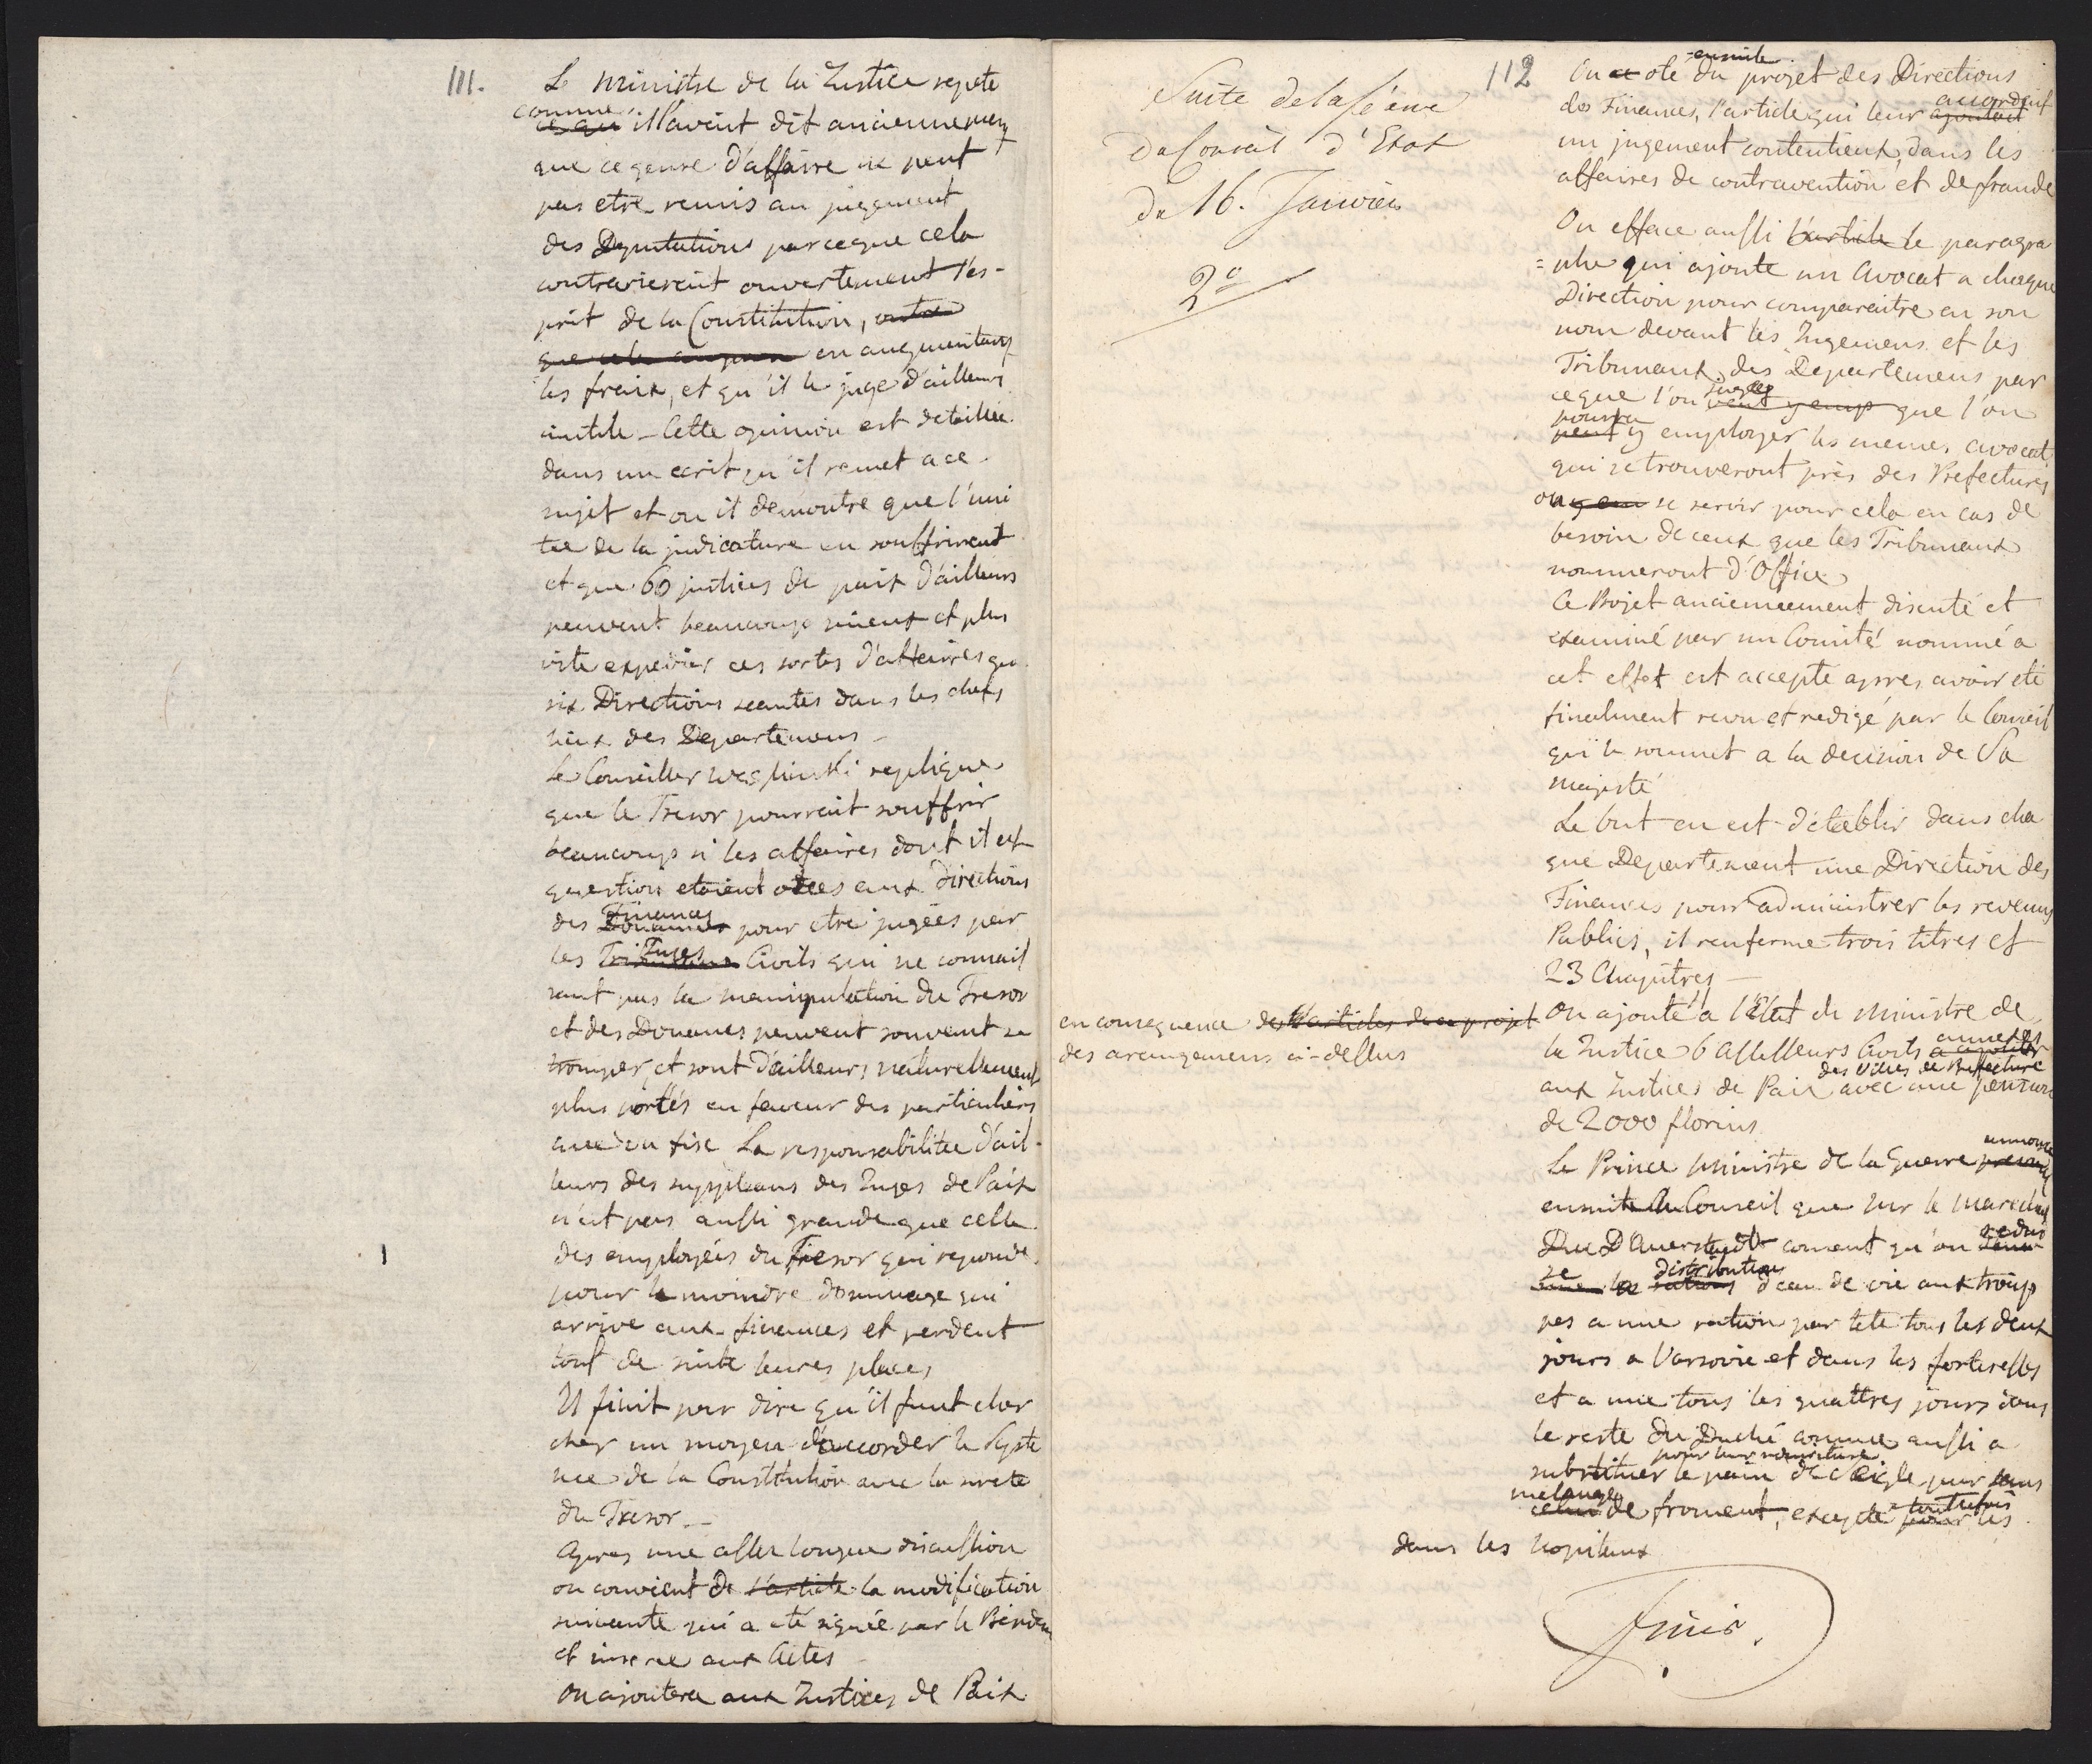 111.
Le Ministre de la Justice repete
comme
ce que il l'avait dit anciennement
que ce genre d'affaire ne peut
pas etre remis au jugement
des Deputations parceque cela
contrarierait ouvertement l'es-
prit de la Constitution, outre
que cela en augmentant
les fraix, et qu'il le juge d'ailleurs
inutile _ Cette opinion est detaillée
dans un ecrit qu'il remet a ce
sujet et ou il demontre que l'uni
tée de la judicature en souffrirait
et que 60 justices de paix d'ailleurs
peuvent beaucoup mieux et plus
vite expedier ces sortes d'affaires que
six Directions seantes dans les chefs
lieux des Departemens _
Le Conseiller Węgliński replique
que le Tresor pourrait souffrir
beaucoup si les affaires dont il est
question etaient otées aux Directions
Finances
des Douannes pour etre jugées par
Juges
les Tribunaux Civils qui ne connais
sant pas la manipulation du Tresor
et des Douanes peuvent souvent se
tromper, et sont d'ailleurs naturellement
plus portés en faveur des particuliers
que du fisc La responsabilitée d'ail-
leurs des suppleans des Juges de Paix
n'est pas aussi grande que celle
des employées du Tresor qui reponde
pour le moindre dommage qui
arrive aux finances et perdent
tout de suite leures places
Il finit par dire qu'il faut cher
cher un moyen d'accorder le Syste
me de la Constitution avec la surete
du Tresor _
Apres une assez longue discussion
on convient de l'article la modification
suivante qui a eté signée par le Presiden
et inserée aux Actes
On ajoutera aux Justices de Paix
Suite de la Séance
Du Conseil d'Etat
Du 16. Janvier
2°
en consequence des articles de ce projet
des arangemens ci-dessus
112
ensuite
On a oté du projet des Directions
accordait
des Finances, l'article qui leur ajoutait
un jugement contentieux, dans les
affaires de contravention et de fraude
On efface aussi l'article le paragra
=phe qui ajoute un Avocat a chaque
Direction pour comparaitre en son
nom devant les Jugemens et les
Tribunaux des Departemens par
juge
ceque l'on veut y emp que l'on
pourra
peut y employer les memes avocats
qui se trouveront près des Prefectures
ou y em se servir pour cela en cas de
besoin de ceux que les Tribunaux
nommeront d'Office
Ce Projet anciennement discuté et
examiné par un Comité nommé a
cet effet est accepte apres avoir eté
finalement revu et redigé par le Conseil
qui le soumet a la decision de Sa
Majesté
Le but en est d'etablir dans cha
que Departement une Direction des
Finances pour administrer les revenus
Publics, il renferme trois titres et
23 Chapitres _
On ajoute a l'Etat du Ministre de
annexés
la Justice 6 Assesseurs Civils a ajouter
des Villes de Prefecture
aux Justices de Paix avec une pension
de 2000 florins
annonce
Le Prince Ministre de la Guerre
ensuite au Conseil que Mr le Marechal
reduis
Duc D'Auerstaedt consent qu'on
se distribution
les rations d'eau de vie aux troup
pes a une ration par tete tous les deux
jours a Varsovie et dans les forteresses
et a une tous les quattres jours dans
le reste du Duché comme aussi a
pour leur nouriture
substituer le pain de seigle pur sans
melange
celui de froment, excepté toutefois
pour les
dans les hopitaux
Finis.